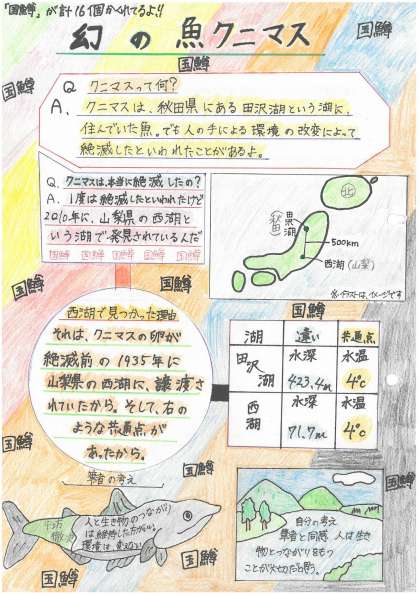 「国鱒」が計16個かくれてるよ!!
幻の魚クニマス
国鱒
国鱒
国鱒
Q クニマスって何?
A、クニマスは、秋田県にある田沢湖という湖に、
住んでいた魚。でも人の手による環境の改変によって
絶滅したといわれたことがあるよ。
国鱒
国鱒
Q、クニマスは、本当に絶滅したの?
A、1度は絶滅したといわれたけど
2010年に、山梨県の西湖と
いう湖で発見されているんだ
国鱒 国鱒 国鱒 国鱒 国鱒
北
500km
西湖(山梨)
※イラストは、イメージです
国鱒
国鱒
西湖で見つかった理由
それは、クニマスの卵が
絶滅前の1935年に
山梨県の西湖に、譲渡さ
れていたから。そして、右の
ような共通点が
あったから。
湖 違い 共通点
田沢湖 水深 423.4m 水温 4℃
西湖 水深 71.7m 水温 4℃
国鱒
国鱒
国鱒
筆者の考え
人と生き物のつながり
は維持した方がいい。
自分の考え
筆者と同感 人は生き
物とつながりをもつ
ことが大切だと思う。
国鱒
国鱒